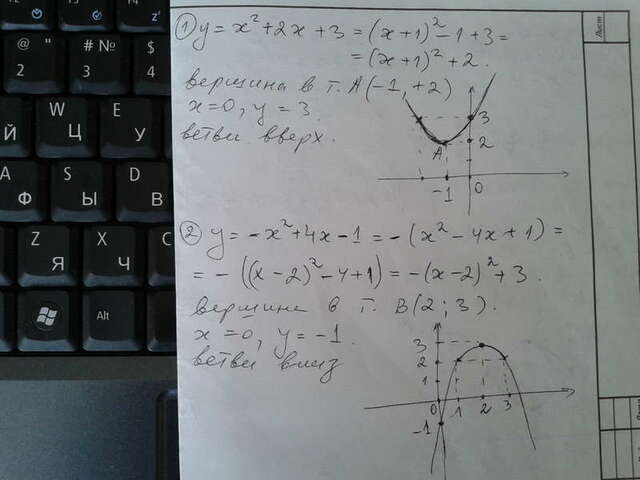 ① y = x² + 2x + 3 = (x+1)² - 1 + 3 =
= (x+1)² + 2.
вершина в т. A(-1, +2)
x=0, y = 3.
ветви вверх.
3
2
A
-1
0
② y = -x² + 4x - 1 = -(x² - 4x + 1) =
= -((x-2)² - 4 + 1) = -(x-2)² + 3.
вершина в т. B(2; 3).
x=0, y = -1.
ветви вниз
3
2
1
0 1 2 3
-1
Лист
@ 2
# № 3
$ 4
W Ц
E У
Й
A Ф
S Ы
D В
Z Я
X Ч
C
Alt